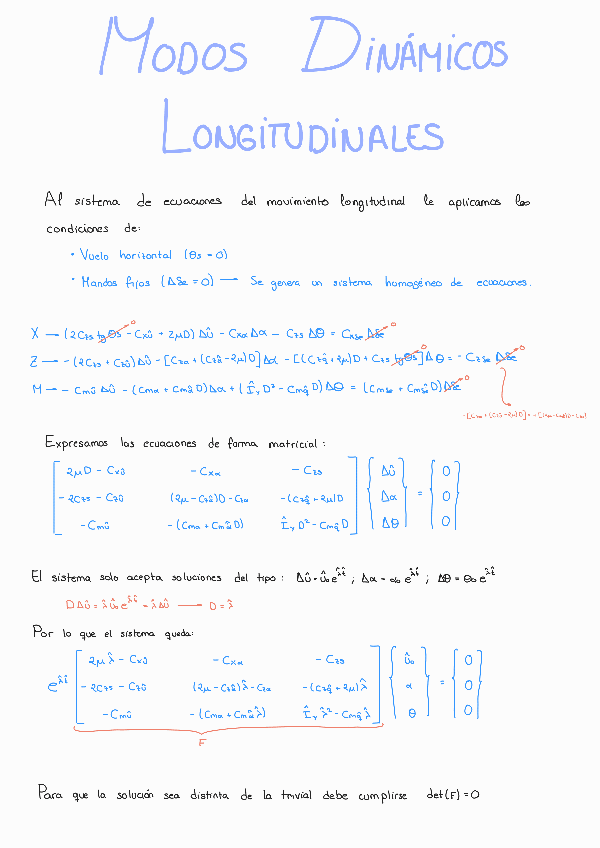 MODOS DINÁMICOS
LONGITUDINALES
Al sistema de ecuaciones del movimiento longitudinal le aplicamos las
condiciones de:
· Vuelo horizontal (θs = 0)
· Mandos fijos (Δδe = 0) → Se genera un sistema homogéneo de ecuaciones.
X → (2Czs tgθs - Cxû + 2μD) Δû - Cxα Δα - Czs Δθ = Cxδe Δδe 0
Z → -(2Czs + Czû) Δû - [Czα + (Czα̂ - 2μ)D] Δα - [(Czq̂ + 2μ)D + Czs tgθs] Δθ = - Czδe Δδe 0
M → - Cmû Δû - (Cmα + Cmα̂ D) Δα + (Îy D² - Cmq̂ D) Δθ = (Cmδe + Cmδ̂e D) Δδe 0
Expresamos las ecuaciones de forma matricial:
2μD - Cxû - Cxα - Czs Δû 0
- 2Czs - Czû (2μ - Czα̂)D - Czα -(Czq̂ + 2μ)D Δα = 0
- Cmû - (Cmα + Cmα̂ D) Îy D² - Cmq̂ D Δθ 0
El sistema solo acepta soluciones del tipo: Δû = û₀ e^λ̂t̂ ; Δα = α₀ e^λ̂t̂ ; Δθ = θ₀ e^λ̂t̂
D Δû = λ̂ û₀ e^λ̂t̂ = λ̂ Δû → D = λ̂
Por lo que el sistema queda:
2μλ̂ - Cxû - Cxα - Czs û₀ 0
e^λ̂t̂ - 2Czs - Czû (2μ - Czα̂)λ̂ - Czα -(Czq̂ + 2μ)λ̂ α = 0
- Cmû - (Cmα + Cmα̂ λ̂) Îy λ̂² - Cmq̂ λ̂ θ 0
F
Para que la solución sea distinta de la trivial debe cumplirse det(F) = 0